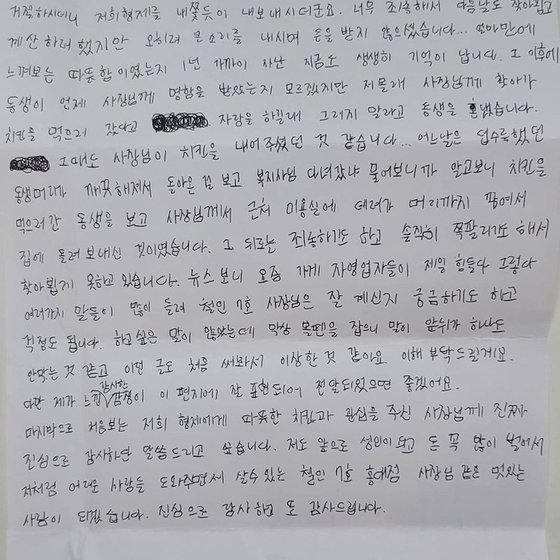 거절하시더니 저희형제를 내쫓듯이 내보내시더군요. 너무 죄송해서 다음날도 찾아뵙고
계산 하려 했지만 오히려 큰소리를 내시며 돈을 받지 않으셨습니다... 얼마만에
느껴보는 따뜻함이였는지 1년 가까이 지난 지금도 생생히 기억이 납니다. 그 이후에
동생이 언제 사장님께 명함을 받았는지 모르겠지만 저몰래 사장님께 찾아가
치킨을 먹으러 갔다고 자랑을 하길래 그러지 말라고 동생을 혼냈습니다.
그때도 사장님이 치킨을 내어주셨던 것 같습니다... 어느날은 덥수룩했던
동생머리가 깨끗해져서 돌아온 걸 보고 복지사님 다녀갔냐 물어보니까 알고보니 치킨을
먹으러간 동생을 보고 사장님께서 근처 미용실에 데려가 머리까지 깎여서
집에 돌려 보내신 것이였습니다. 그 뒤로는 죄송하기도 하고 솔직히 쪽팔리기도 해서
찾아뵙지 못하고 있습니다. 뉴스보니 요즘 가게 자영업자들이 제일 힘들다 그렇다
여러가지 말들이 많이 들려 철인 7호 사장님은 잘 계신지 궁금하기도 하고
걱정도 됩니다. 하고싶은 말이 많았는데 막상 볼펜을 잡으니 말이 앞뒤가 하나도
안맞는 것 같고 이런 글도 처음 써봐서 이상한 것 같아요. 이해 부탁드릴게요.
다만 제가 느낀 감사한 감정이 이 편지에 잘 표현되어 전달되었으면 좋겠어요.
마지막으로 처음보는 저희 형제에게 따뜻한 치킨과 관심을 주신 사장님께 진짜
진심으로 감사하단 말씀드리고 싶습니다. 저도 앞으로 성인이되고 돈 꼭 많이 벌어서
저처럼 어려운 사람들 도와주면서 살수있는 철인 7호 홍대점 사장님 같은 멋있는
사람이 되겠습니다. 진심으로 감사하고 또 감사드립니다.